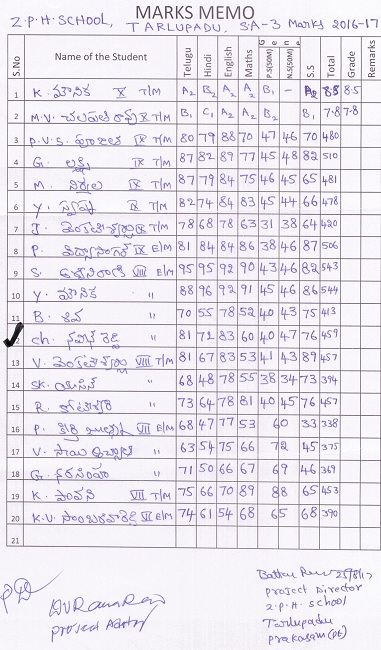 MARKS MEMO
Z.P.H. SCHOOL, TARLUPADU, SA-3 Marks 2016-17
S.No Name of the Student Telugu Hindi English Maths General P.S(50M) N.S(50M) S.S Total Grade Remarks
1 K. మౌనిక X T/M A2 B2 A2 A2 B1 - A2 8.8 8.5
2 M.V. X T/M B1 C1 A2 A2 B2 B1 7.8 7.8
3 P.V.S. IX T/M 80 79 88 70 47 46 70 480
4 G. లక్ష్మి IX T/M 87 82 89 77 45 48 82 510
5 M. నిర్మల IX T/M 87 79 84 75 46 45 65 481
6 Y. స్వప్న IX T/M 82 74 84 83 45 44 66 478
7 J. వెంకటేశ్వర్లు IX T/M 78 68 78 63 31 38 64 420
8 P. విద్యాసాగర్ IX E/M 81 84 84 86 38 46 87 506
9 S. VIII E/M 95 95 92 90 43 46 82 543
10 Y. మౌనిక " 88 96 92 91 45 46 86 544
11 B. శివ " 70 55 78 52 40 43 75 413
12 ch. నవీన్ రెడ్డి " 81 72 83 60 40 47 76 459
13 V. వెంకటేశ్వర్లు VIII T/M 81 67 83 53 41 43 89 457
14 SK. యాసిన్ " 68 48 78 55 38 34 73 394
15 R. " 73 64 78 81 40 45 76 457
16 P. VII E/M 68 47 77 53 60 33 338
17 V. సాయి " 63 54 75 66 72 45 375
18 G. నరసింహ " 71 50 66 67 69 46 369
19 K. పావని VII T/M 75 66 70 89 88 65 453
20 K.V. VI E/M 74 61 54 68 65 68 390
21
25/8/17
project Director
Z.P.H. School
Tarlupadu
prakasam (Dt)